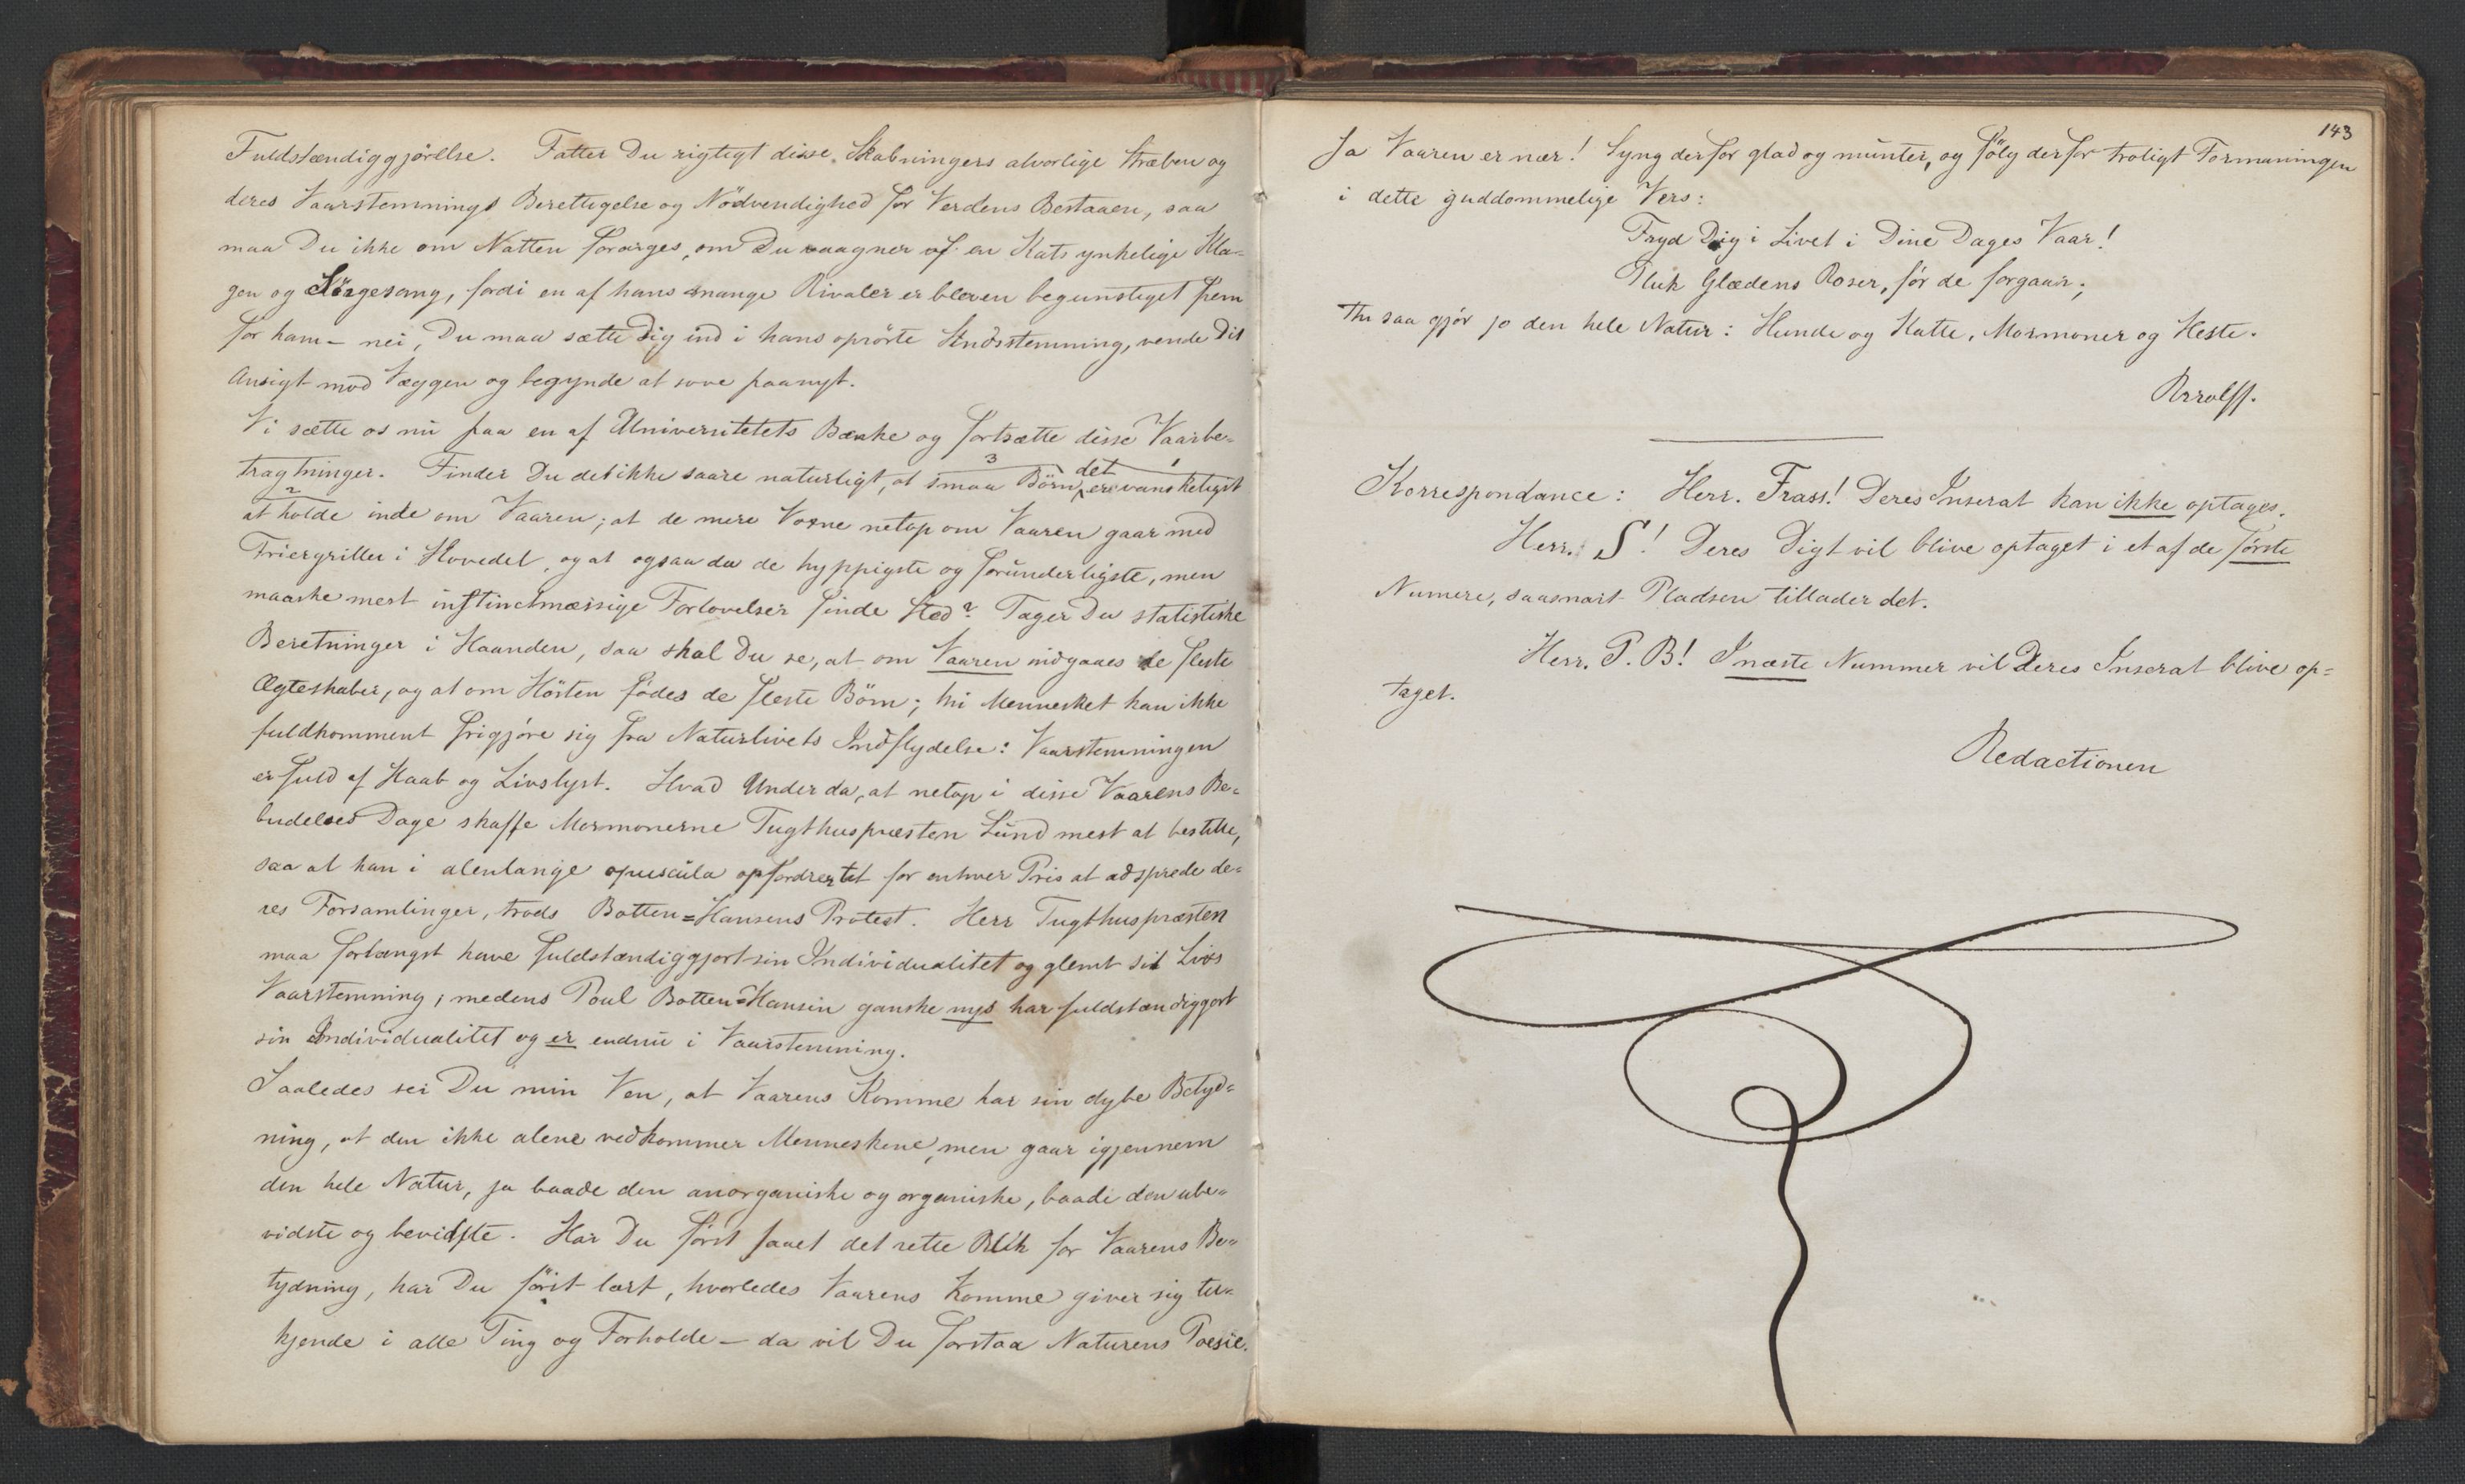 Fuldstændiggjörelse. Fatter Du rigtigt disse Skabningers alvorlige Stræben og
deres Vaarstemnings Berettigelse og Nödvendighed for Verdens Bestaaen, saa
maa Du ikke om Natten forarges, om Du vaagner af en Kats ynkelige Kla-
gen og Sörgesang, fordi en af hans mange Rivaler er bleven begunstiget frem
for ham – nei, Du maa sætte Dig ind i hans oprörte Sindsstemning, vende Dit
Ansigt mod Væggen og begynde at sove paanyt.
Vi sætte os nu paa en af Universitetets Bænke og fortsætte disse Vaarbe-
tragtninger. Finder Du det ikke saare naturligt, at smaa Börn det er vanskeligst
at holde inde om Vaaren; at de mere Voxne netop om Vaaren gaar med
Friergriller i Hovedet, og at ogsaa da de hyppigste og forunderligste, men
maaske mest instinctmæssige Forlovelser finde Sted? Tager Du statistiske
Beretninger i Haanden, saa skal Du se, at om Vaaren indgaaes de fleste
Ægteskaber, og at om Hösten födes de fleste Börn; thi Mennesket kan ikke
fuldkomment frigjöre sig fra Naturlivets Indflydelse: Vaarstemningen
er fuld af Haab og Livslyst. Hvad Under da, at netop i disse Vaarens Be-
budelses Dage skaffe Mormonerne Tugthuspræsten Lund mest at bestille,
saa at han i alenlange opuscula opfordrer til for enhver Pris at adsprede de-
res Forsamlinger, trods Botten=Hansens Protest. Herr Tugthuspræsten
maa forlængst have fuldstændiggjort sin Individualitet og glemt sit Livs
Vaarstemning, medens Poul Botten=Hansen ganske nys har fuldstændiggjort
sin Individualitet og er endnu i Vaarstemning.
Saaledes ser Du min Ven, at Vaarens Komme har sin dybe Betyd-
ning, at den ikke alene vedkommer Menneskene, men gaar igjennem
den hele Natur, ja baade den anorganiske og organiske, baade den ube-
vidste og bevidste. Har Du först faaet det rette Blik for Vaarens Be-
tydning, har Du först lært, hvorledes Vaarens Komme giver sig til-
kjende i alle Ting og Forholde – da vil Du forstaa Naturens Poesie.
143
Ja Vaaren er nær! Syng derfor glad og munter, og fölg derfor troligt Formaningen
i dette guddommelige Vers:
Fryd Dig i Livet i Dine Dages Vaar!
Pluk Glædens Roser, för de forgaar;
Thi saa gjör jo den hele Natur: Hunde og Katte, Mormoner og Heste.
Rrrolff.
Korrespondance: Herr. Frass! Deres Inserat kan ikke optages.
Herr. S! Deres Digt vil blive optaget i et af de förste
Numere, saasnart Pladsen tillader det.
Herr. P. B! I næste Nummer vil Deres Inserat blive op=
taget.
Redactionen